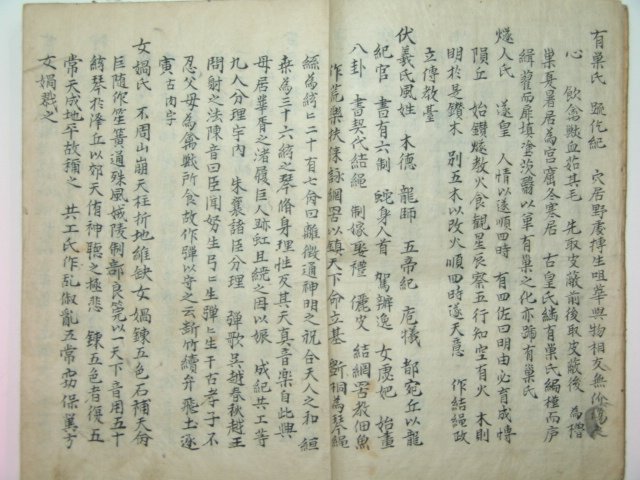 有巢氏 號仡紀 穴居野處搏生咀華與物相友無
心 飮禽獸血茹其毛 先取皮蔽前後取皮蔽後 爲橧
巢臭暑居爲宮窟冬寒居 古皇氏緖有巢氏編槿而庐
緝藋而扉塡塗茨翳以草有巢之化亦號有巢氏
燧人氏 遂皇 人情以遂順四時 有四佐曰明由必育成博
隕丘 始鑽燧敎火食觀星辰察五行知空有火 木則
明於是鑽木 別五木以改火順四時遂天意 作結繩政
立傳敎臺
伏羲氏風姓 木德 龍師 五帝紀 庖犧 都宛丘以龍
紀官 書有六制 蛇身八首 駕辦逸 女虙妃 始畫
八卦 書契代結繩 制嫁娶禮 儷皮 結網罟敎佃魚
作荒樂扶徠詠網罟以鎭天下命立基 斲桐爲琴繩
絲爲絃二十有七命曰離徽通神明之祝合天人之和 絙
桑爲三十六絃之琴脩身理性反其天眞音樂自此興
母居華胥之渚履巨人跡虹且繞之因以娠 成紀共工等
九人分理宇內 朱襄諸臣分理 彈歌吳越春秋越王
問射之法陳音曰臣聞弩生弓弓生彈彈生干古孝子不
忍父母爲禽獸所食故作彈以守之云斷竹續竹飛土逐
宍古肉字
女媧氏 不周山崩天柱折地維缺女媧鍊五色石補天命
臣隨作笙簧通殊風娥陵制都良管以一天下音用五十
絃琴於澤丘以郊天侑神聽之極悲 鍊五色者復五
常天成地平故補之 共工氏作乱俶亂五常 保冀方
女媧戮之